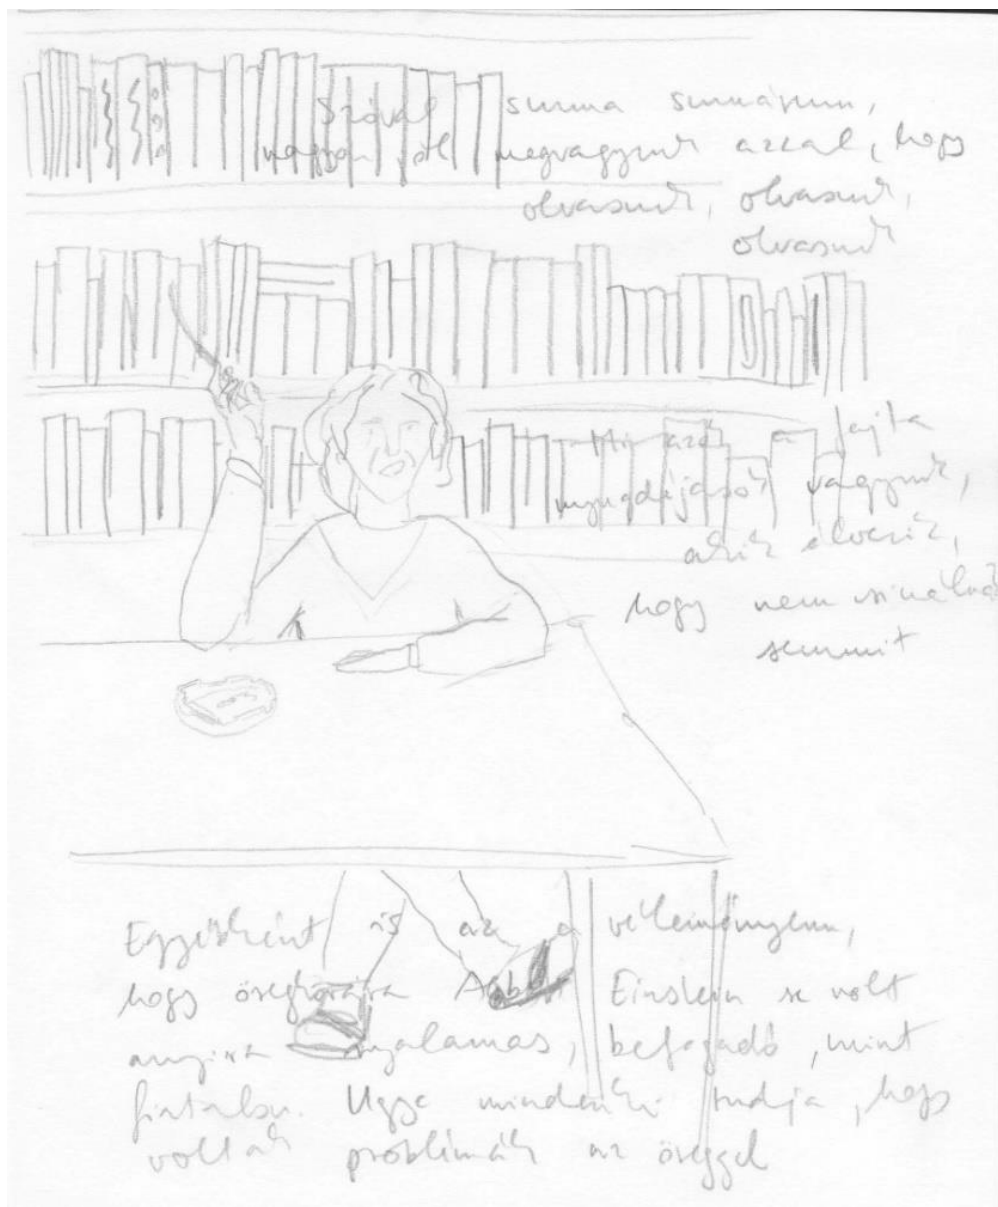 Szóval summa summárum,
nagyon jól megvagyunk azzal, hogy
olvasunk, olvasunk,
olvasunk
Mi azok a fajta
nyugdíjasok vagyunk,
akik élvezik,
hogy nem csinálnak
semmit
Egyébként is az a véleményem,
hogy öregkorára Albert Einstein se volt
annyira rugalmas, befogadó, mint
fiatalon. Ugye mindenki tudja, hogy
voltak problémák az öreggel